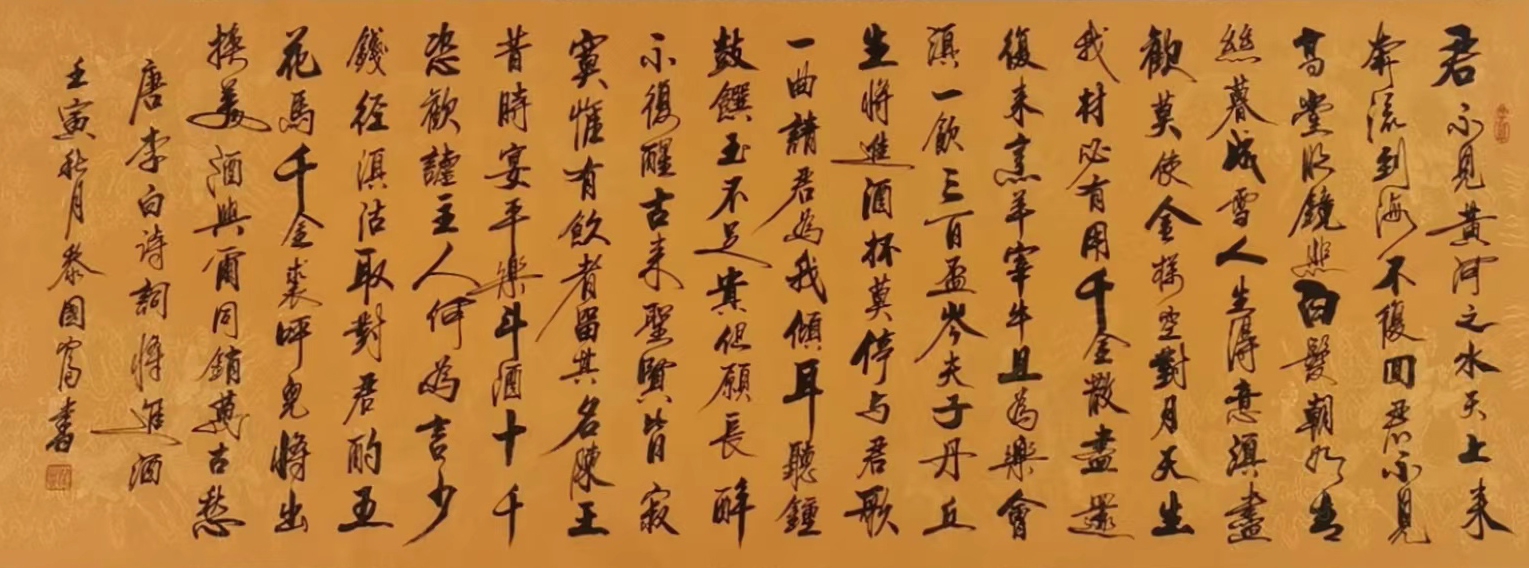 君不見黃河之水天上来
奔流到海不復回君不見
高堂明鏡悲白髮朝如青
絲暮成雪人生得意須盡
歡莫使金樽空對月天生
我材必有用千金散盡還
復来烹羊宰牛且為樂會
須一飲三百盃岑夫子丹丘
生將進酒杯莫停与君歌
一曲請君為我傾耳聽鐘
鼓饌玉不足貴但願長醉
不復醒古来聖賢皆寂
寞惟有飲者留其名陳王
昔時宴平樂斗酒十千
恣歡謔主人何為言少
錢径須沽取對君酌五
花馬千金裘呼兒將出
換美酒與爾同銷萬古愁
唐李白诗詞將進酒
壬寅秋月國富書